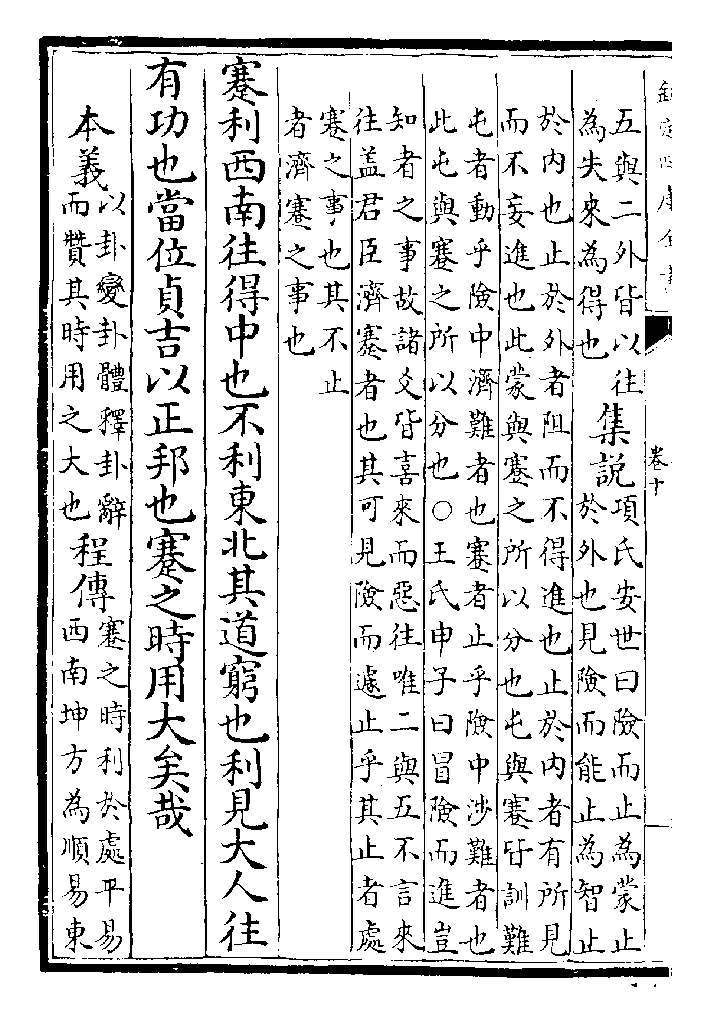 欽定四庫全書
卷十
五與二外皆以往
為失來為得也
集説
項氏安世曰險而止為蒙止
於外也見險而能止為智止
於內也止於外者阻而不得進也止於內者有所見
而不妄進也此蒙與蹇之所以分也屯與蹇皆訓難
屯者動乎險中濟難者也蹇者止乎險中涉難者也
此屯與蹇之所以分也○王氏申子曰冒險而進豈
知者之事故諸爻皆喜來而惡往唯二與五不言來
往盖君臣濟蹇者也其可見險而遽止乎其止者處
蹇之事也其不止
者濟蹇之事也
蹇利西南往得中也不利東北其道窮也利見大人往
有功也當位貞吉以正邦也蹇之時用大矣哉
本義
以卦變卦體釋卦辭
而贊其時用之大也
程傳
蹇之時利於處平易
西南坤方為順易東